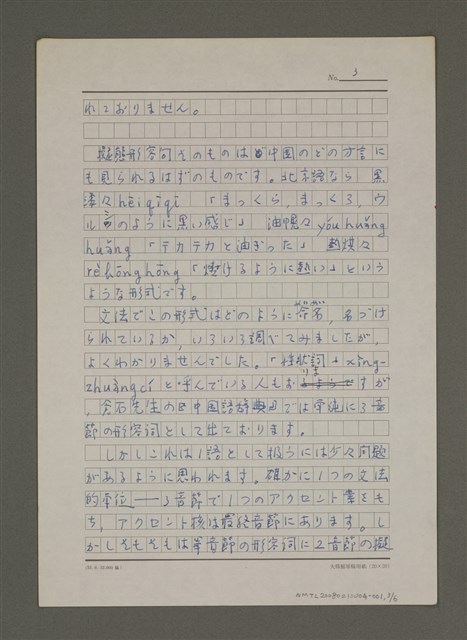 No. 3
れておりません。
擬態形容句そのものは中国のどの方言に
も見られるはずのものです。北京語なら 黒
漆々 hēiqīqī 「まっくら，まっくろ，ウ
ルシのように黒い感じ」 油幌々 yóuhuǎng
huǎng 「テカテカと油ぎった」 熱烘々
rèhōnghōng 「焼けるように熱い」という
ような形式です。
文法でこの形式はどのように命名，名づけ
られているか，いろいろ調べてみましたが，
よくわかりませんでした。「性状詞」xìng-
zhuàngcí と呼んでいる人もおりますが
，倉石先生の『中国語辞典』では単純に3音
節の形容詞として出ております。
しかしこれは1語として扱うには少々問題
があるように思われます。確かに1つの文法
的単位──3音節で1つのアクセント素をも
ち，アクセント核は最終音節にあります。し
かしそもそもは単音節の形容詞に2音節の擬
(20×20)